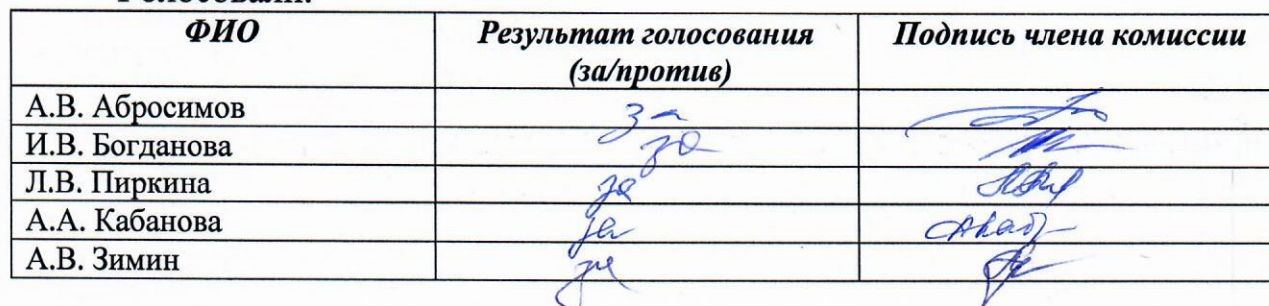 Голосовали:
ФИО Результат голосования (за/против) Подпись члена комиссии
А.В. Абросимов за
И.В. Богданова за
Л.В. Пиркина за
А.А. Кабанова за
А.В. Зимин за